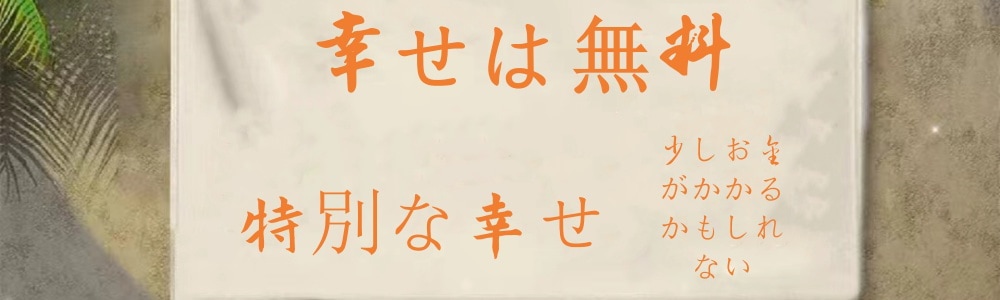 幸せは無料
特別な幸せ
少しお金
がかかる
かもしれ
ない